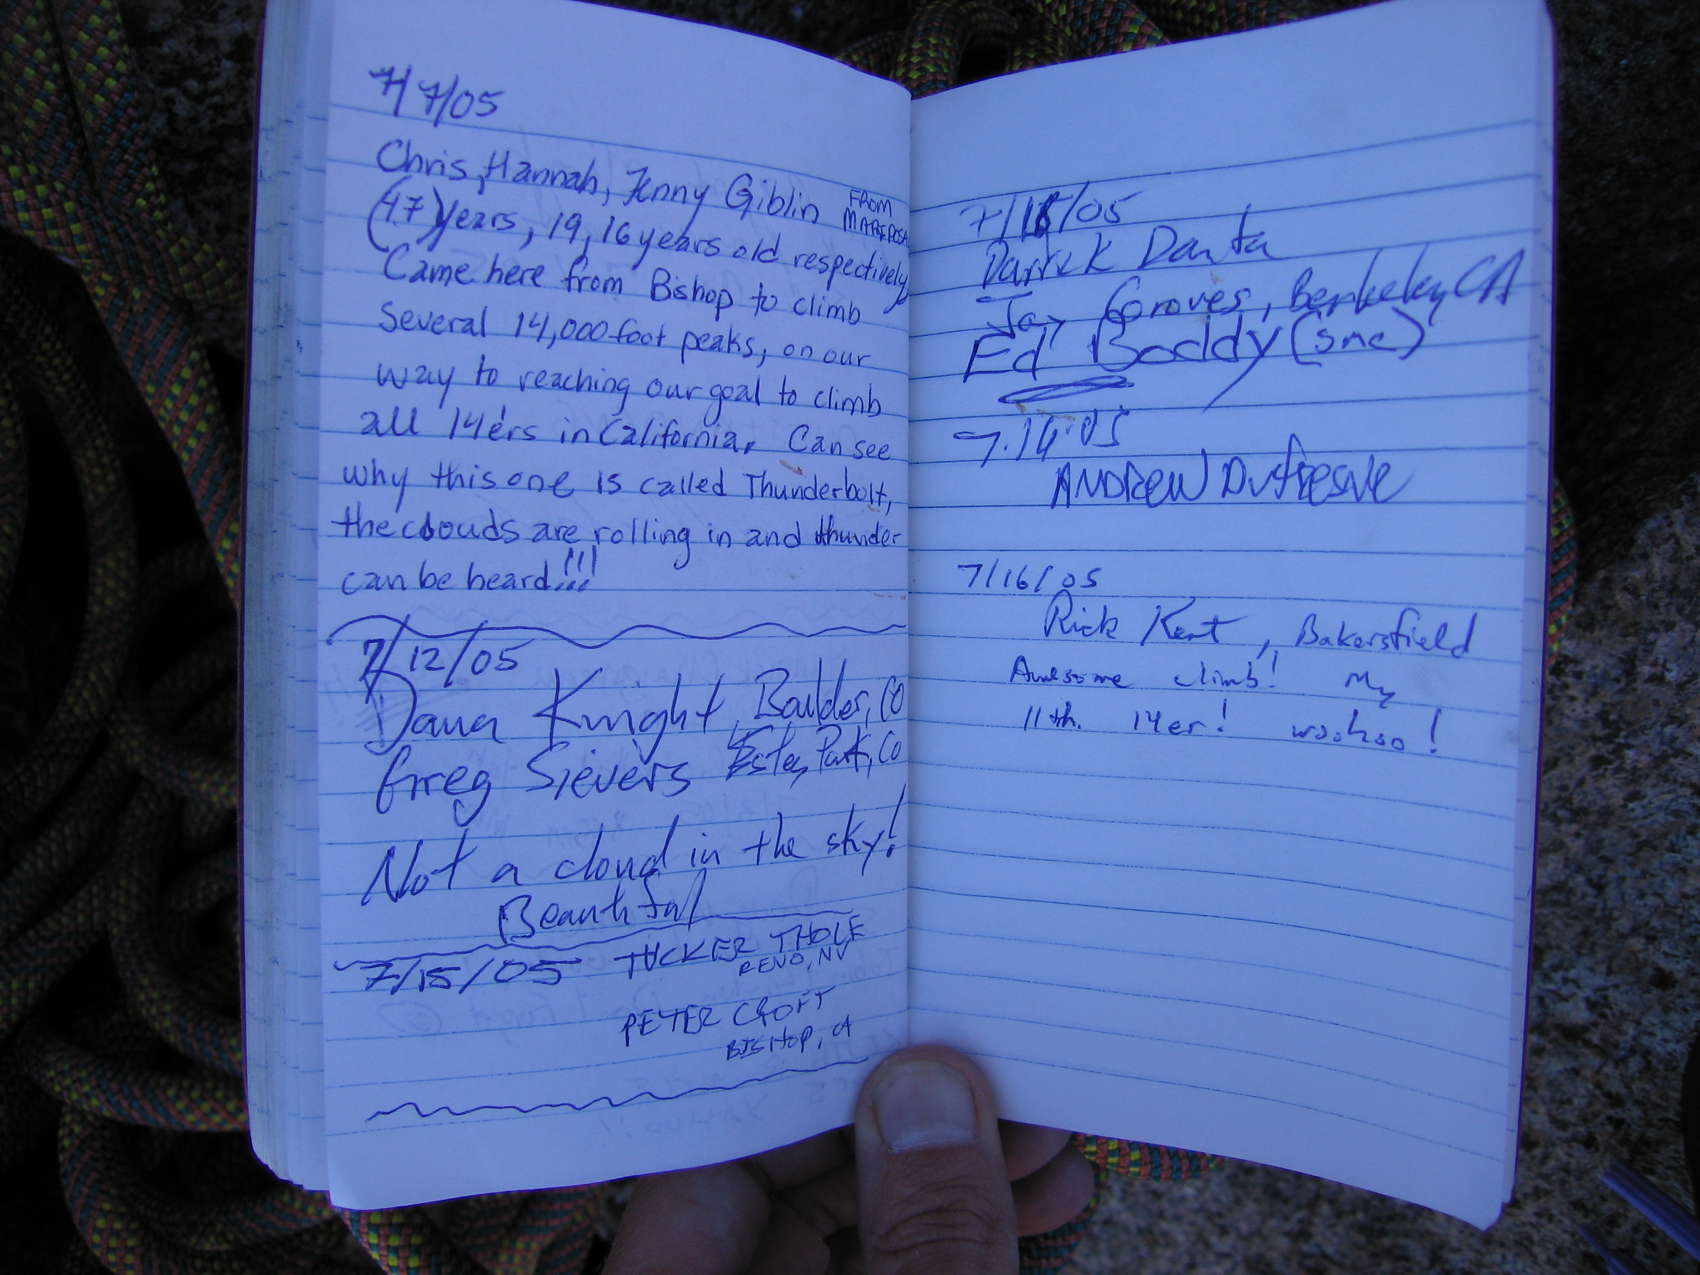 7/7/05
Chris, Hannah, Jenny Giblin FROM MARIPOSA
(47) years, 19, 16 years old respectively
Came here from Bishop to climb
several 14,000 foot peaks, on our
way to reaching our goal to climb
all 14'ers in California. Can see
why this one is called Thunderbolt,
the clouds are rolling in and thunder
can be heard!!!
7/12/05
Dana Knight, Boulder, CO
Greg Sievers Estes Park, CO
Not a cloud in the sky!
Beautiful
7/15/05 TUCKER THOLE
RENO, NV
PETER CROFT
BISHOP, CA
/05
Darrick Danta
Groves, Berkeley CA
Ed Boddy (smc)
7.14.05
ANDREW Dufresne
7/16/05
Rick Kent, Bakersfield
Awesome climb! My
11th. 14er! woohoo!